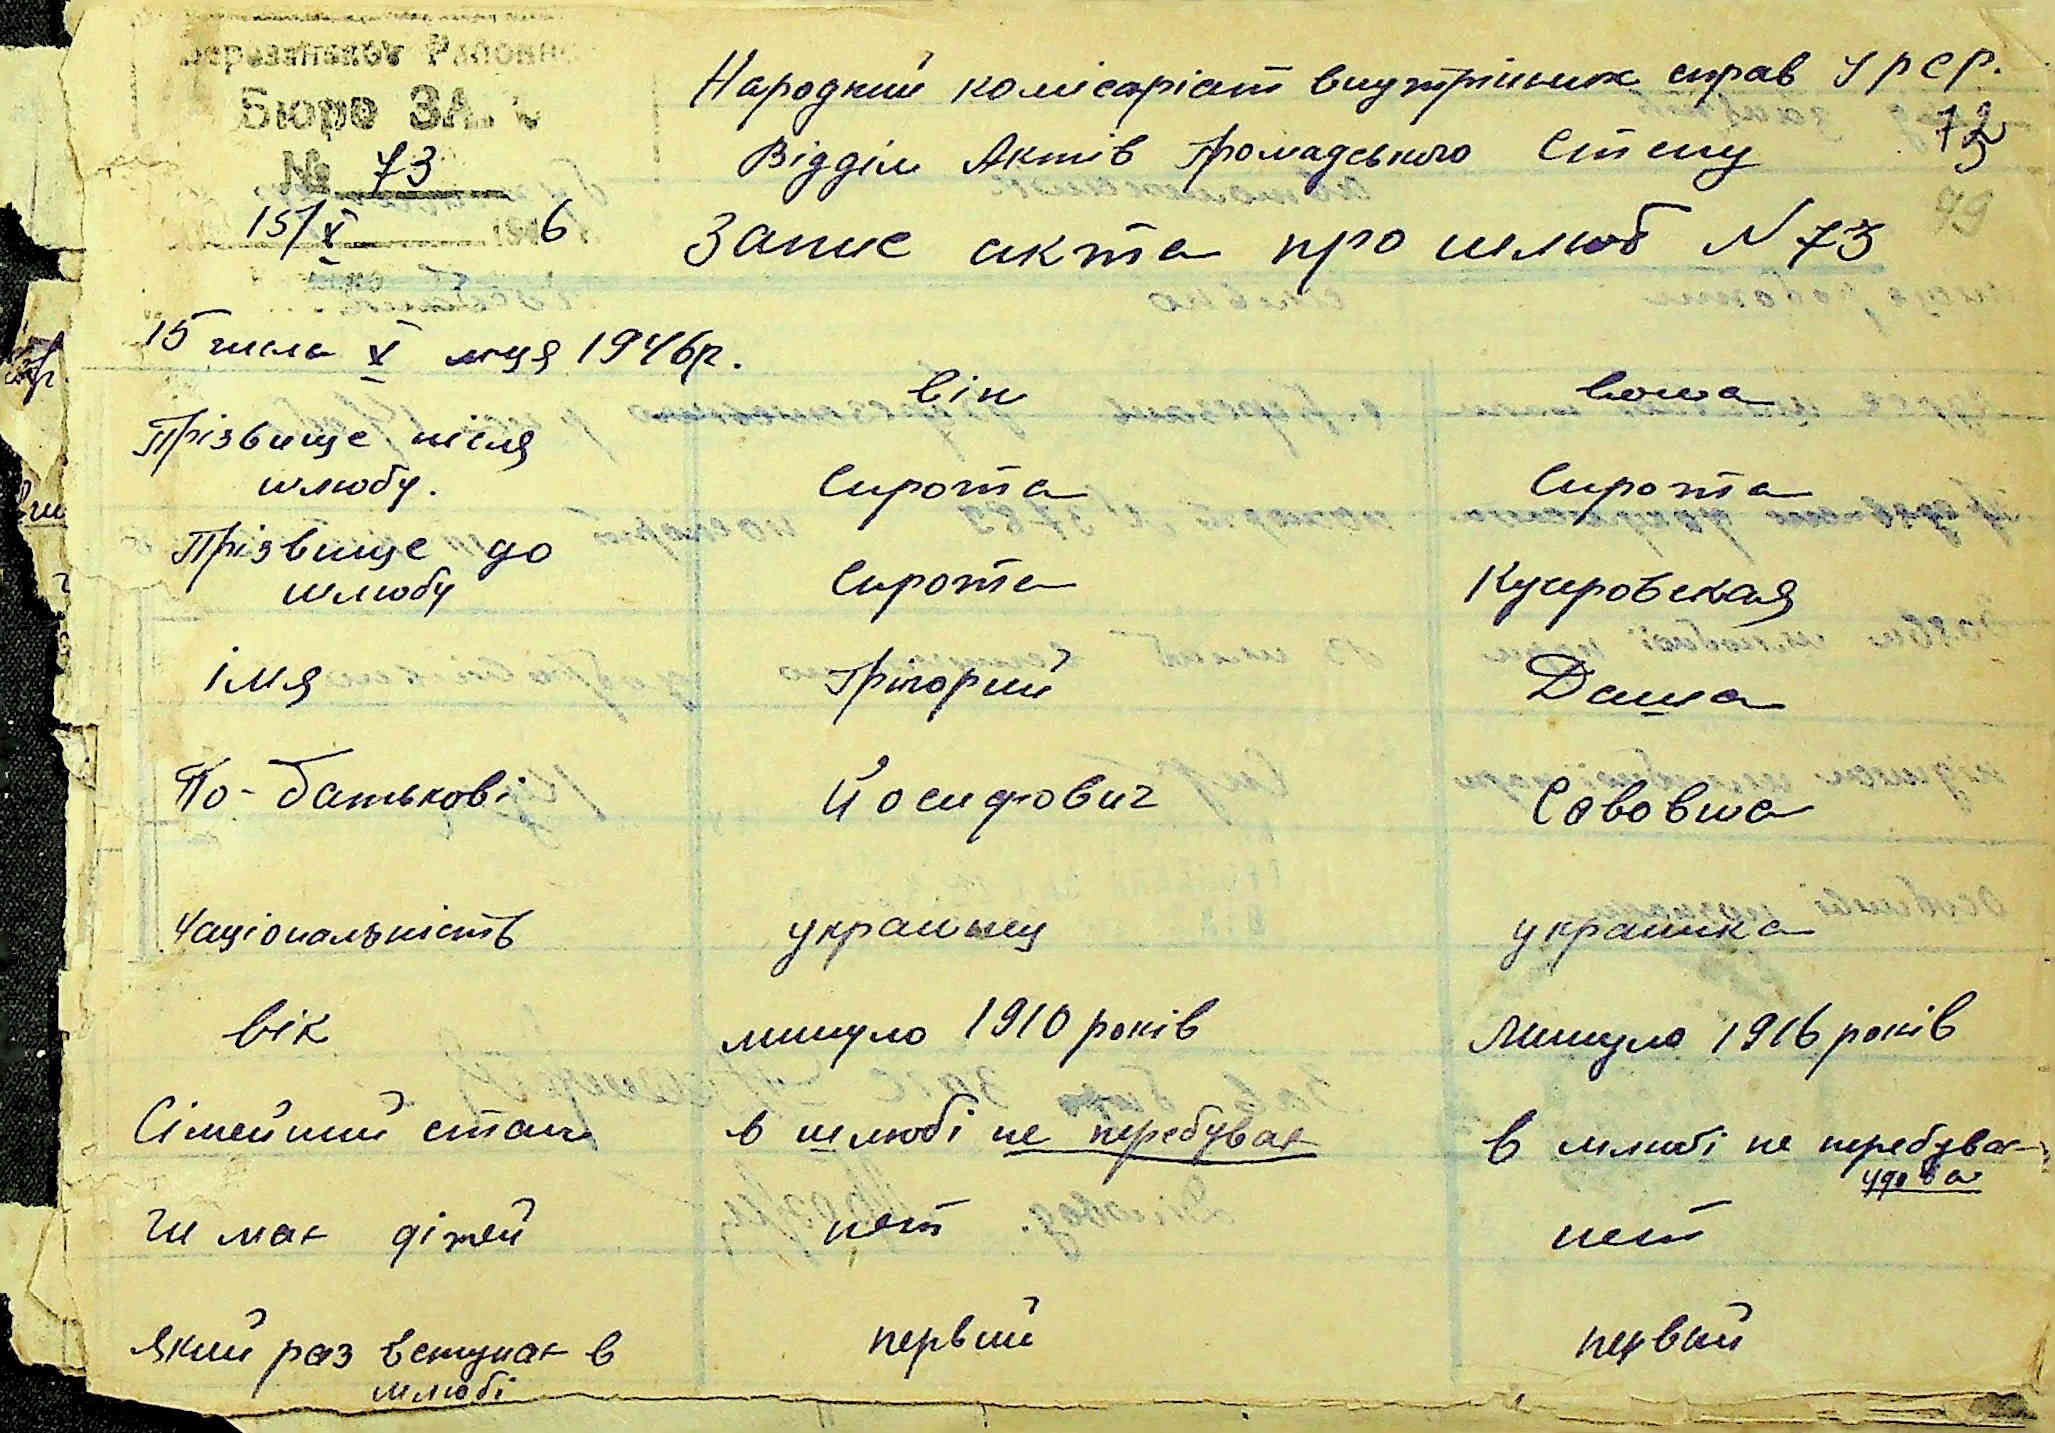 Бюро ЗА
№ 73
15/X 6
Народний комісаріат внутрішних справ УРСР.
Відділ Актів Громадського Стену
73
79
Запис акта про шлюб N 73
15 числа X м-ця 1946р.
він вона
Прізвище після шлюбу. Сирота Сирота
Прізвище до шлюбу Сирота Куцровская
імя Грігорий Даша
По-батькові Йосифович Сововна
Національність украинец украинка
вік минуло 1910 років Минуло 1916 років
Сімейний стан в шлюбі не перебуває в шлюбі не перебуває
удова
Чи має дітей нет нет
Який раз вступає в шлюбі первий первий